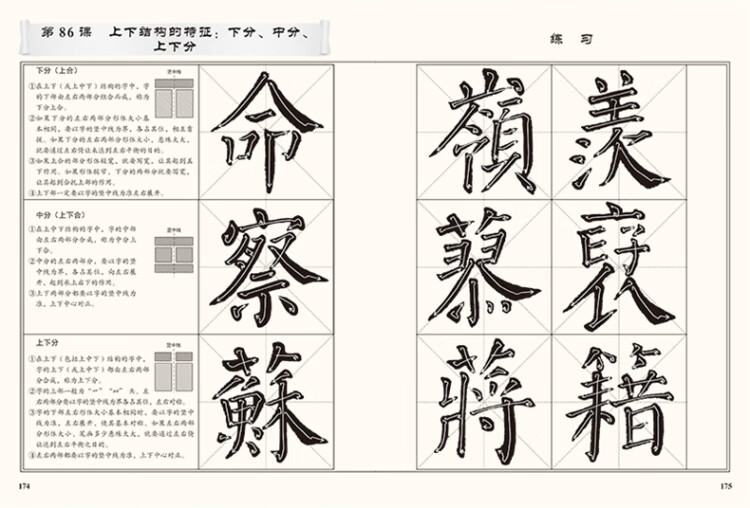 第 86 课　上下结构的特征：下分、中分、
上下分
下分（上合）
竖中线
①在上下（或上中下）结构的字中，字
的下部由左右两部分组合而成，称为
下分上合。
②如果下分的左右两部分形体大小基
本相同，要以字的竖中线为界，各占其位，相互
揖。如果下分的左右两部分形体大小，悬殊太大，
就要通过左右倚让来达到左右平衡的目的。
③如果上合的部分形体较宽，就要写宽，让其起到盖
下作用。如果形体较窄，下分的两部分就要写宽，
让其起到合托上部的作用。
④上下部一定要以字的竖中线为准左右展开。
命
中分（上下合）
竖中线
①在上中下结构的字中，字的中部
由左右两部分合成，称为中分上
下合。
②中分的左右两部分，要以字的竖
中线为界，各占其位，向左右展
开，起到承上右下的作用。
③上下两部分都要以字的竖中线为
准，上下中心对正。
察
上下分
竖中线
①在上下（包括上中下）结构的字中，
字的上下（或上中下）都由左右两部
分合成，称为上下分。
②字的上部一般为“⺮”“艹”头，左
右两部分要以字的竖中线为界各占其位，左右对称。
③字的下部左右形体大小基本相同时，要以字的竖中
线为准，左右展开，使其基本对称。如果左右两部
分形体大小、笔画多少悬殊太大，就要通过左右倚
让达到左右平衡之目的。
④左右两部都要以字的竖中线为准，上下中心对正。
蘇
174
练　习
嶺 羡
慕 褎
蔣 籍
175